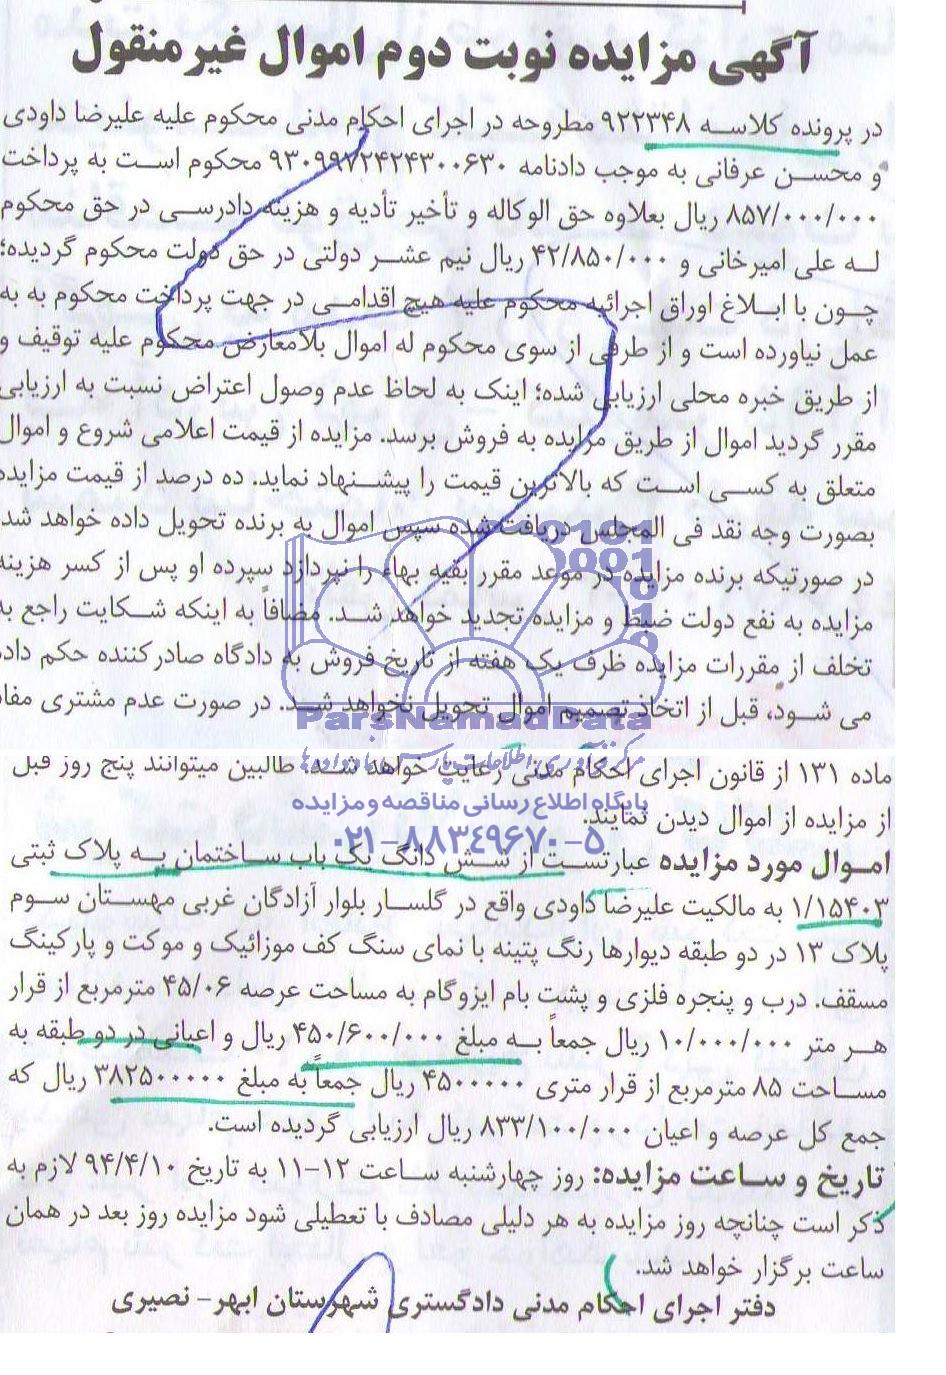 آگهی مزایده نوبت دوم اموال غیرمنقول
در پرونده کلاسه ۹۲۲۳۴۸ مطروحه در اجرای احکام مدنی محکوم علیه علیرضا داودی
و محسن عرفانی به موجب دادنامه ۹۳۰۹۹۷۲۴۲۴۳۰۰۶۳۰ محکوم است به پرداخت
۸۵۷/۰۰۰/۰۰۰ ریال بعلاوه حق الوکاله و تأخیر تأدیه و هزینه دادرسی در حق محکوم
له علی امیرخانی و ۴۲/۸۵۰/۰۰۰ ریال نیم عشر دولتی در حق دولت محکوم گردیده؛
چون با ابلاغ اوراق اجرائیه محکوم علیه هیچ اقدامی در جهت پرداخت محکوم به به
عمل نیاورده است و از طرفی از سوی محکوم له اموال بلامعارض محکوم علیه توقیف و
از طریق خبره محلی ارزیابی شده؛ اینک به لحاظ عدم وصول اعتراض نسبت به ارزیابی
مقرر گردید اموال از طریق مزایده به فروش برسد. مزایده از قیمت اعلامی شروع و اموال
متعلق به کسی است که بالاترین قیمت را پیشنهاد نماید. ده درصد از قیمت مزایده
بصورت وجه نقد فی المجلس دریافت شده سپس اموال به برنده تحویل داده خواهد شد
در صورتیکه برنده مزایده در موعد مقرر بقیه بهاء را نپردازد سپرده او پس از کسر هزینه
مزایده به نفع دولت ضبط و مزایده تجدید خواهد شد. مضافاً به اینکه شکایت راجع به
تخلف از مقررات مزایده ظرف یک هفته از تاریخ فروش به دادگاه صادرکننده حکم داده
می شود، قبل از اتخاذ تصمیم اموال تحویل نخواهد شد. در صورت عدم مشتری مفاد
ParsNamadData
مرکز فرآوری اطلاعات پارس نماد داده ها
ماده ۱۳۱ از قانون اجرای احکام مدنی رعایت خواهد شد، طالبین میتوانند پنج روز قبل
پایگاه اطلاع رسانی مناقصه و مزایده
از مزایده از اموال دیدن نمایند.
۰۲۱-۸۸۳۴۹۶۷۰-۵
اموال مورد مزایده عبارتست از شش دانگ یک باب ساختمان به پلاک ثبتی
۱/۱۵۴۰۳ به مالکیت علیرضا داودی واقع در گلسار بلوار آزادگان غربی مهستان سوم
پلاک ۱۳ در دو طبقه دیوارها رنگ پتینه با نمای سنگ کف موزائیک و موکت و پارکینگ
مسقف. درب و پنجره فلزی و پشت بام ایزوگام به مساحت عرصه ۴۵/۰۶ مترمربع از قرار
هر متر ۱۰/۰۰۰/۰۰۰ ریال جمعاً به مبلغ ۴۵۰/۶۰۰/۰۰۰ ریال و اعیانی در دو طبقه به
مساحت ۸۵ مترمربع از قرار متری ۴۵۰۰۰۰۰ ریال جمعاً به مبلغ ۳۸۲۵۰۰۰۰۰ ریال که
جمع کل عرصه و اعیان ۸۳۳/۱۰۰/۰۰۰ ریال ارزیابی گردیده است.
تاریخ و ساعت مزایده: روز چهارشنبه ساعت ۱۲-۱۱ به تاریخ ۹۴/۴/۱۰ لازم به
ذکر است چنانچه روز مزایده به هر دلیلی مصادف با تعطیلی شود مزایده روز بعد در همان
ساعت برگزار خواهد شد.
دفتر اجرای احکام مدنی دادگستری شهرستان ابهر- نصیری